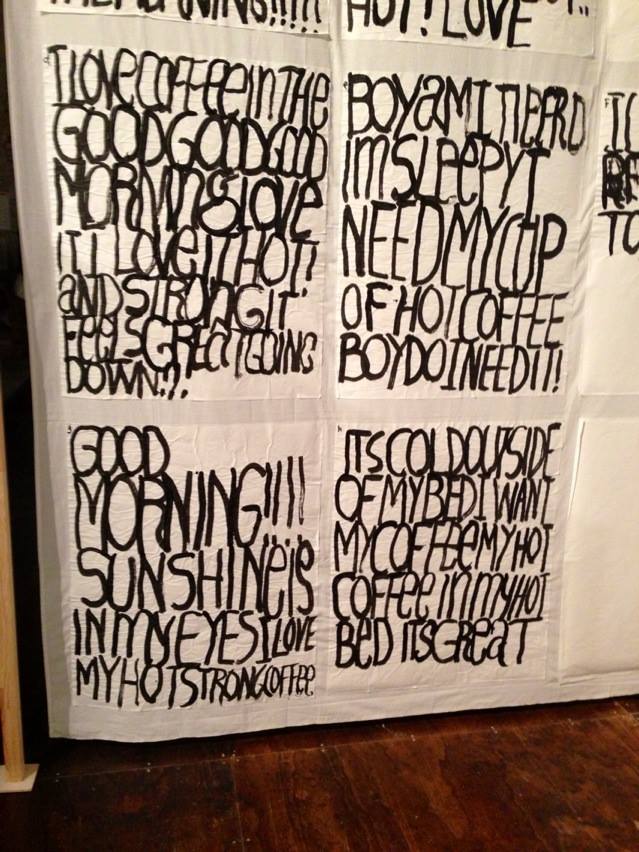 HOT! LOVE
I LOVE COFFEE IN THE
GOOD GOOD GOOD
MORNING I LOVE
IT I LOVE IT HOT!
AND STRONG IT
FEELS GREAT GOING
DOWN!!.
BOY AM I TIEERD
IM SLEEPY I
NEED MY CUP
OF HOT COFFEE
BOY DO I NEED IT!
GOOD
MORNING!!!!
SUNSHINE is
IN MY EYES I LOVE
MY HOT STRONG COFFEE
ITS COLD OUTSIDE
OF MY BED I WANT
MY COFFEE MY HOT
COFFEE in my HOT
BED ITS GREAT